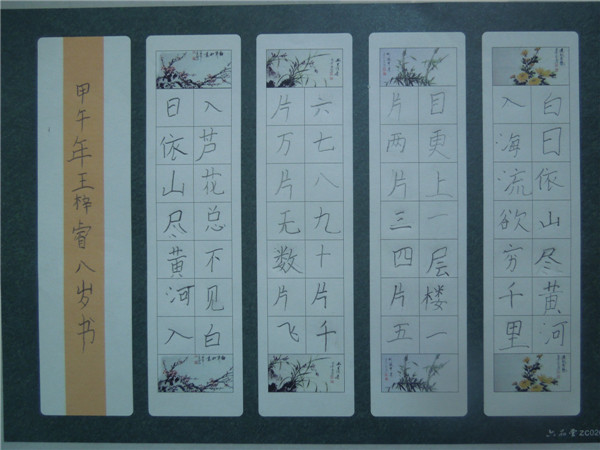 白日依山尽黄河
入海流欲穷千里
目更上一层楼一
片两片三四片五
六七八九十片千
片万片无数片飞
入芦花总不见白
日依山尽黄河入
甲午年王梓睿八岁书
六品堂